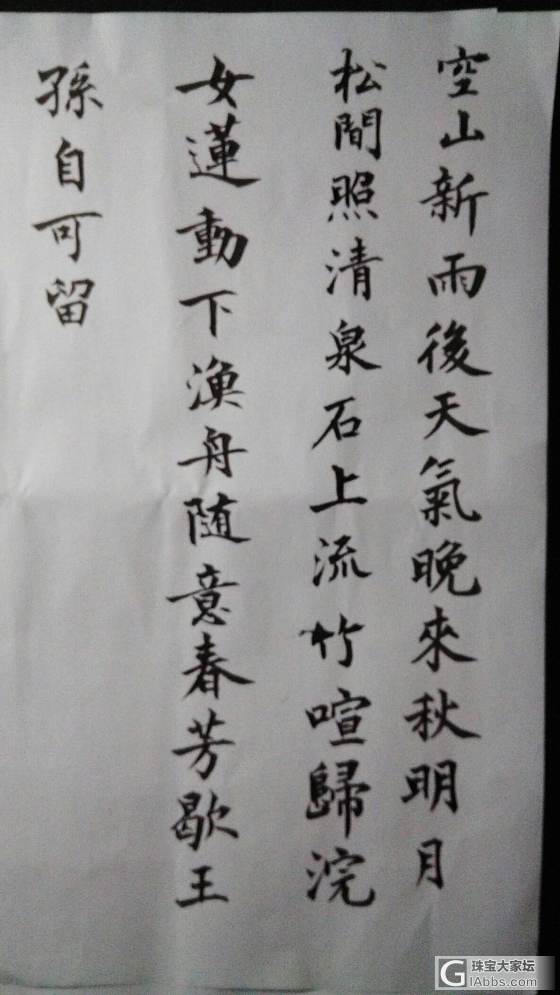 空山新雨後天氣晚來秋明月
松間照清泉石上流竹喧歸浣
女蓮動下漁舟随意春芳歇王
孫自可留
珠宝大家坛
GIAbbs.com